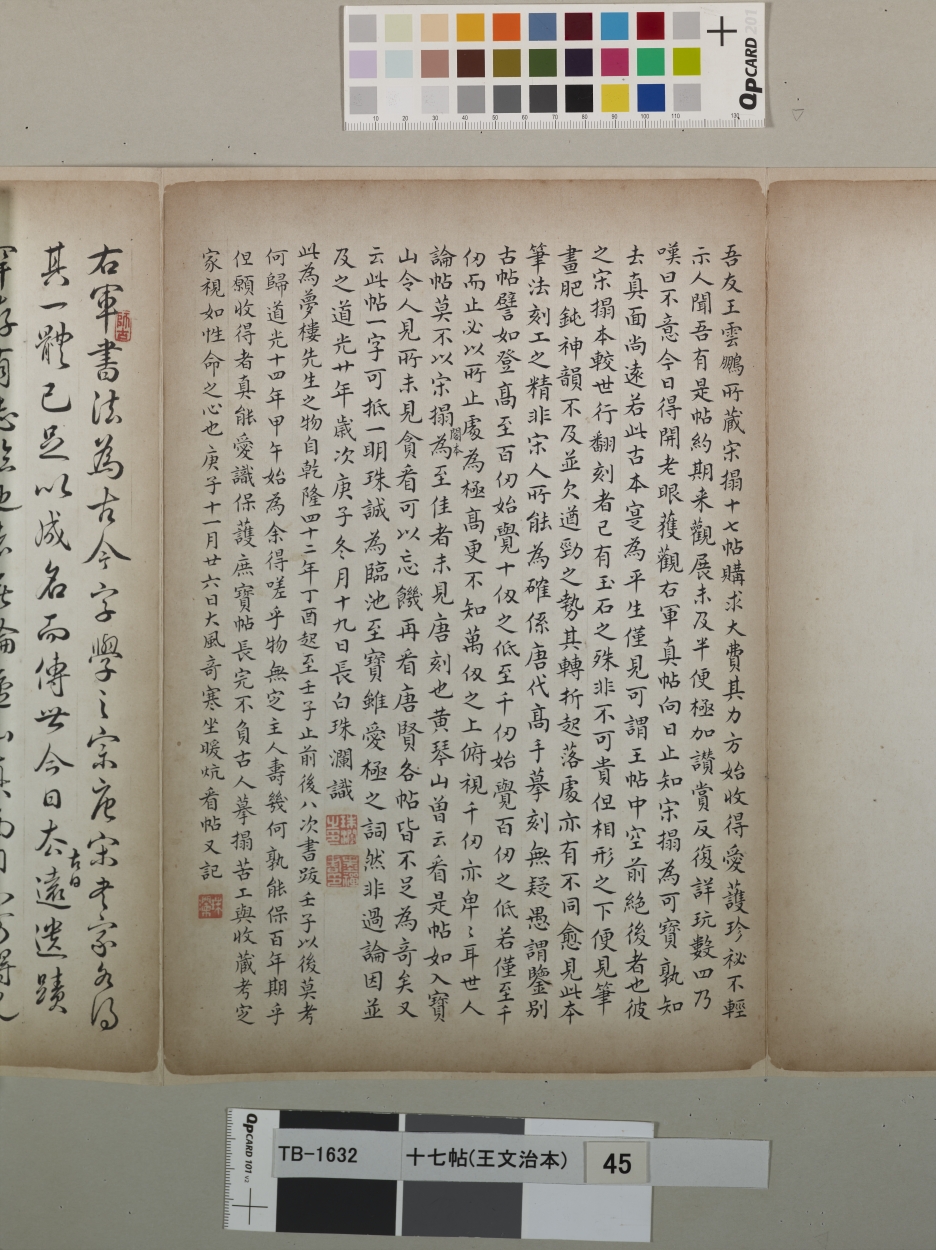 吾友王雲鵬所藏宋搨十七帖購求大費其力方始收得愛護珍祕不輕
示人聞吾有是帖約期来觀展未及半便極加讚賞反復詳玩數四乃
嘆曰不意今日得開老眼獲觀右軍真帖向日止知宋搨為可寶孰知
去真面尚遠若此古本寔為平生僅見可謂王帖中空前絶後者也彼
之宋搨本較世行翻刻者已有玉石之殊非不可貴但相形之下便見筆
畫肥鈍神韻不及並欠遒勁之勢其轉折起落處亦有不同愈見此本
筆法刻工之精非宋人所能為確係唐代高手摹刻無疑愚謂鑒別
古帖譬如登高至百仞始覺十仞之低至千仞始覺百仞之低若僅至千
仞而止必以所止處為極高更不知萬仞之上俯視千仞亦卑〻耳世人
論帖莫不以宋搨閣本為至佳者未見唐刻也黄琴山曾云看是帖如入寶
山令人見所未見貪看可以忘饑再看唐賢各帖皆不足為奇矣又
云此帖一字可抵一明珠誠為臨池至寶雖愛極之詞然非過論因並
及之道光廿年歲次庚子冬月十九日長白珠瀾識
此為夢樓先生之物自乾隆四十二年丁酉起至壬子止前後八次書跋壬子以後莫考
何歸道光十四年甲午始為余得嗟乎物無定主人壽幾何孰能保百年期乎
但願收得者真能愛識保護庶寶帖長完不負古人摹搨苦工與收藏考定
家視如性命之心也庚子十一月廿六日大風奇寒坐暖炕看帖又記
右軍書法為古今字學之宗唐宋大家各得
其一體已足以成名而傳世今日去古日遠遺蹟
QPCARD 201
10 20 30 40 50 60 70 80 90 100 110 130
QPCARD 101 v2
TB-1632
十七帖(王文治本)
45